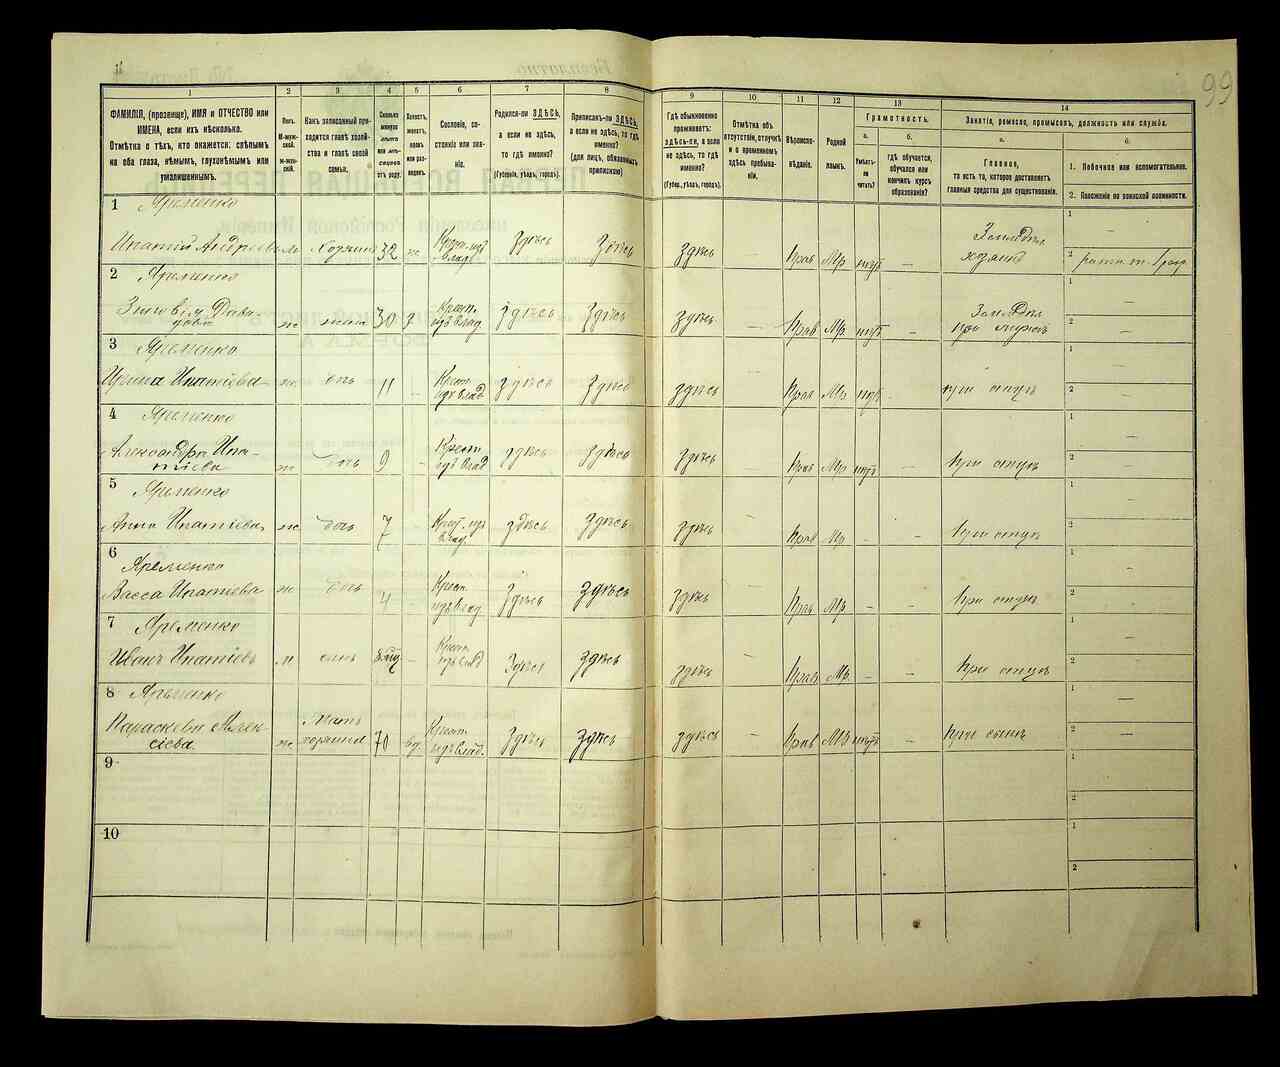 99
1
2
3
4
5
6
7
8
9
10
11
12
13
14
ФАМИЛІЯ, (прозвище), ИМЯ и ОТЧЕСТВО или
ИМЕНА, если ихъ нѣсколько.
Отмѣтка о тѣхъ, кто окажется: слѣпымъ
на оба глаза, нѣмымъ, глухонѣмымъ или
умалишеннымъ.
Полъ.
М-мужской.
Ж-женскій.
Какъ записанный приходится главѣ хозяйства и главѣ своей семьи.
Сколько минуло лѣтъ или мѣсяцевъ отъ роду.
Холостъ, женатъ, вдовъ или разведенъ.
Сословіе, состояніе или званіе.
Родился-ли ЗДѢСЬ,
а если не здѣсь,
то гдѣ именно?
(Губернія, уѣздъ, городъ).
Приписанъ-ли ЗДѢСЬ,
а если не здѣсь, то гдѣ
именно?
(для лицъ, обязанныхъ
припискою)
Гдѣ обыкновенно
проживаетъ:
здѣсь-ли, а если
не здѣсь, то гдѣ
именно?
(Губер., уѣздъ, городъ).
Отмѣтка объ
отсутствіи, отлучкѣ
и о временномъ
здѣсь пребываніи.
Вѣроисповѣданіе.
Родной
языкъ.
Грамотность.
а.
Умѣетъ-ли
читать?
б.
гдѣ обучается,
обучался или
кончилъ курсъ
образованія?
Занятія, ремесло, промыселъ, должность или служба.
а.
Главное,
то есть то, которое доставляетъ
главныя средства для существованія.
б.
1. Побочное или вспомогательное.
2. Положеніе по воинской повинности.
1
Яременко
Ипатій Андреевъ м Хозяинъ 32 ж Крест. изъ влад. здѣсь здѣсь здѣсь — Прав Мр нѣтъ — Земледѣл. хозяинъ 1 — 2
2
Яременко
ж жена 30 Крест. изъ влад здѣсь здѣсь здѣсь — Прав Мр нѣтъ — Земледѣл при мужѣ 1 — 2 —
3
Яременко
Ирина Ипатіева ж дочь 11 - Крест изъ влад здѣсь здѣсь здѣсь — Прав Мр нѣтъ — при отцѣ 1 — 2 —
4
Яременко
Александра Ипатіева ж дочь 9 - Крест изъ влад здѣсь здѣсь здѣсь — Прав Мр нѣтъ — при отцѣ 1 — 2 —
5
Яременко
Анна Ипатіева ж дочь 7 Крест. изъ влад. здѣсь здѣсь здѣсь — Прав Мр - - при отцѣ 1 — 2 —
6
Яременко
Васса Ипатіева ж дочь 4 Крест изъ влад здѣсь здѣсь здѣсь — Прав Мр - - при отцѣ 1 — 2 —
7
Яременко
Иванъ Ипатіевъ м сынъ - Крест изъ влад здѣсь здѣсь здѣсь — Прав Мр. - - при отцѣ 1 — 2 —
8
Яременко
Параскева Алексіева ж Мать хозяина 70 вд. Крест изъ влад. здѣсь здѣсь здѣсь — Прав Мр нѣтъ - при сынѣ 1 — 2 —
9
2
10
1
2